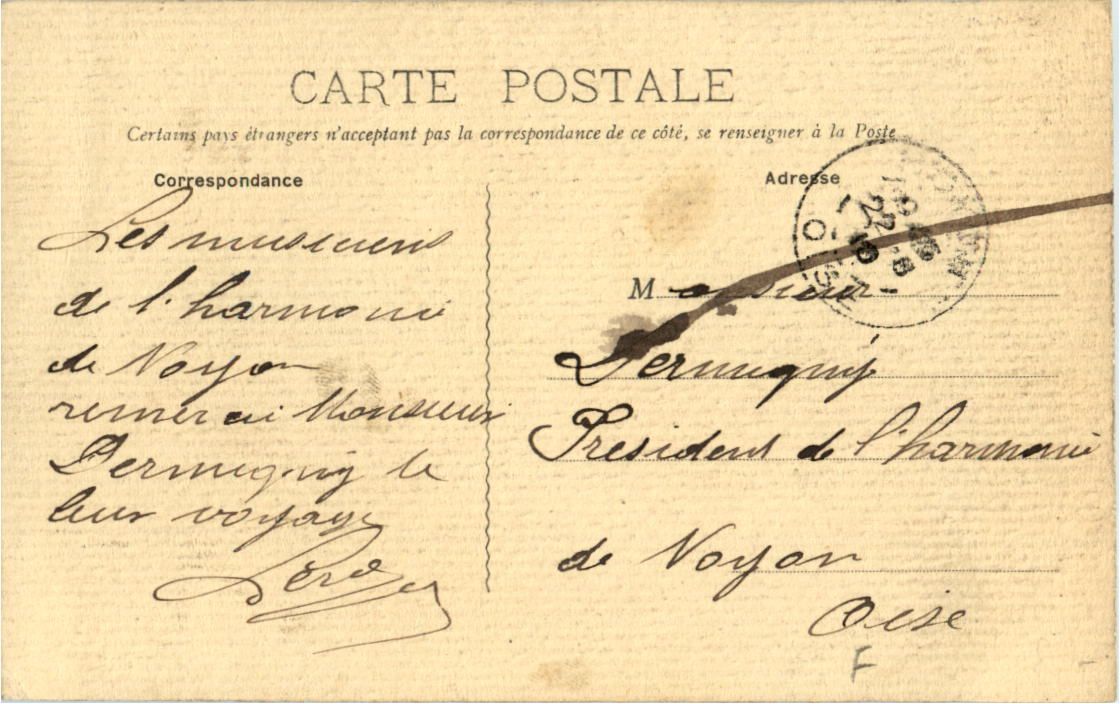 CARTE POSTALE
Certains pays étrangers n'acceptant pas la correspondance de ce côté, se renseigner à la Poste
Correspondance
Les musiciens
de l'harmonie
de Noyon
remercie Monsieur
Dermigny de
leur voyage
Adresse
Monsieur
Dermigny
President de l'harmonie
de Noyon
Oise
F
NOYON
OISE